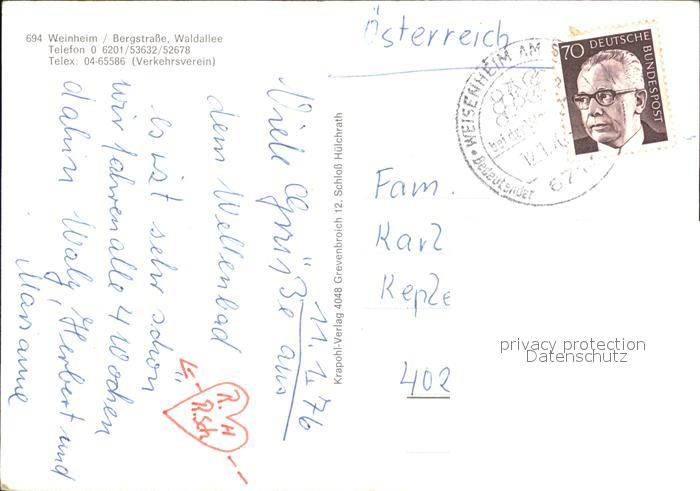 694 Weinheim / Bergstraße, Waldallee
Telefon 0 6201/53632/52678
Telex: 04-65586 (Verkehrsverein)
11.1.76
Viele Grüße aus
dem Wellenbad
es ist sehr schön
wir fahren alle 4 Wochen
dahin Waly, Herbert und
Marianne
R. H
R. Sch
Krapohl-Verlag 4048 Grevenbroich 12, Schloß Hülchrath
Österreich
WEISENHEIM AM
Bedeutender
671
70 DEUTSCHE
BUNDESPOST
Fam.
Karl
Keple
402
privacy protection
Datenschutz